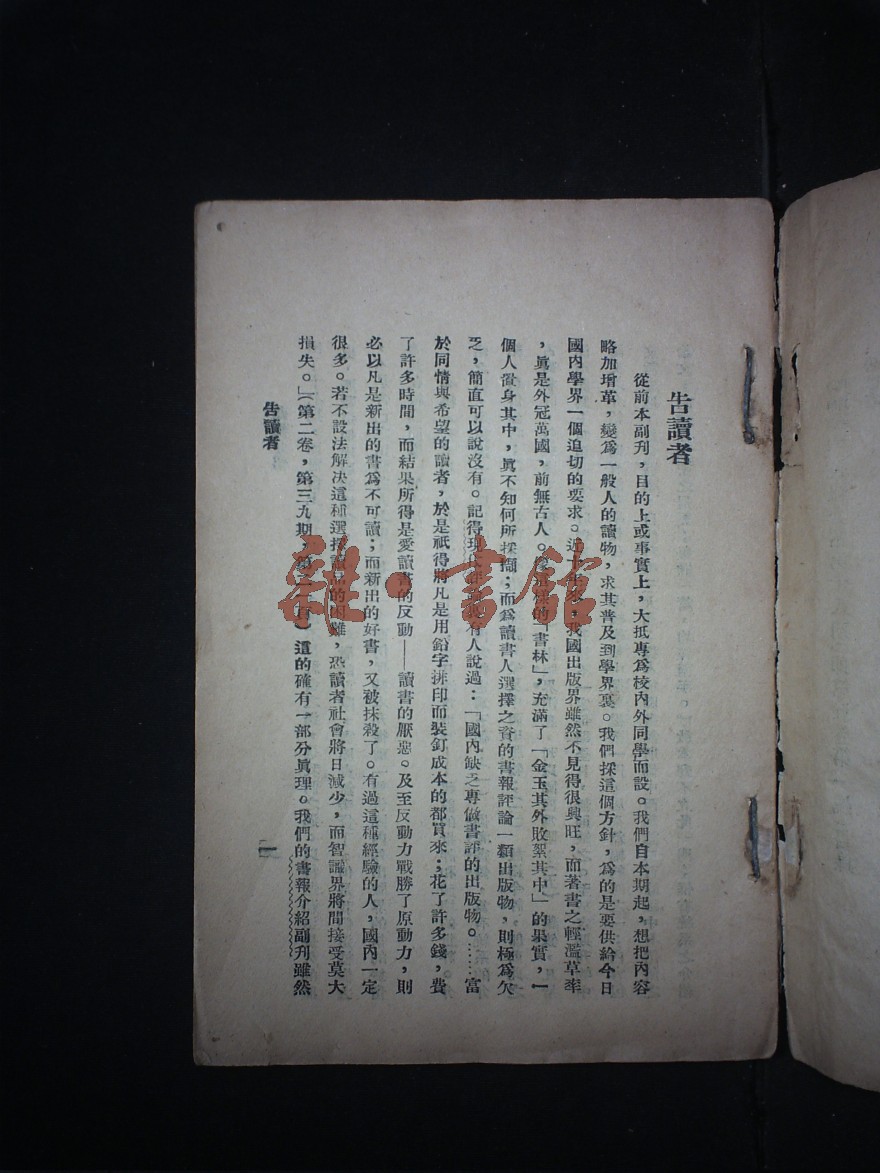 告讀者
從前本副刋，目的上或事實上，大抵專爲校內外同學而設。我們自本期起，想把內容
略加增革，變爲一般人的讀物，求其普及到學界裏。我們採這個方針，爲的是要供給今日
國內學界一個迫切的要求。近十年來，我國出版界雖然不見得很興旺，而著書之輕濫草率
，眞是外冠萬國，前無古人。像這樣的「書林」，充滿了「金玉其外敗絮其中」的果實，一
個人置身其中，眞不知何所採擷；而爲讀書人選擇之資的書報評論一類出版物，則極爲欠
乏，簡直可以說沒有。記得現代評論有人說過：「國內缺乏專做書評的出版物。……富
於同情與希望的讀者，於是祇得將凡是用鉛字排印而裝釘成本的都買來；花了許多錢，費
了許多時間，而結果所得是愛讀書的反動——讀書的厭惡。及至反動力戰勝了原動力，則
必以凡是新出的書爲不可讀；而新出的好書，又被抹殺了。有過這種經驗的人，國內一定
很多。若不設法解決這種選擇讀品的困難，恐讀者社會將日減少，而智識界將間接受莫大
損失。」（第二卷，第三九期，第二頁）這的確有一部分眞理。我們的書報介紹副刋雖然
告讀者
一
雜·書館